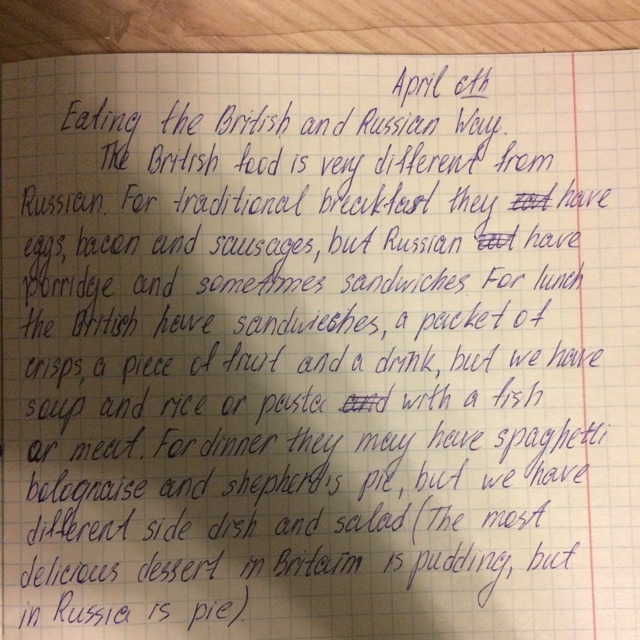 April 6th
Eating the British and Russian Way.
The British food is very different from
Russian. For traditional breakfast they eat have
eggs, bacon and sausages, but Russian eat have
porridge and sometimes sandwiches. For lunch
the British have sandwieches, a packet of
crisps, a piece of fruit and a drink, but we have
soup and rice or pasta and with a fish
or meat. For dinner they may have spaghetti
bolognaise and shepherd's pie, but we have
different side dish and salad (The most
delicious dessert in Britain is pudding, but
in Russia is pie)